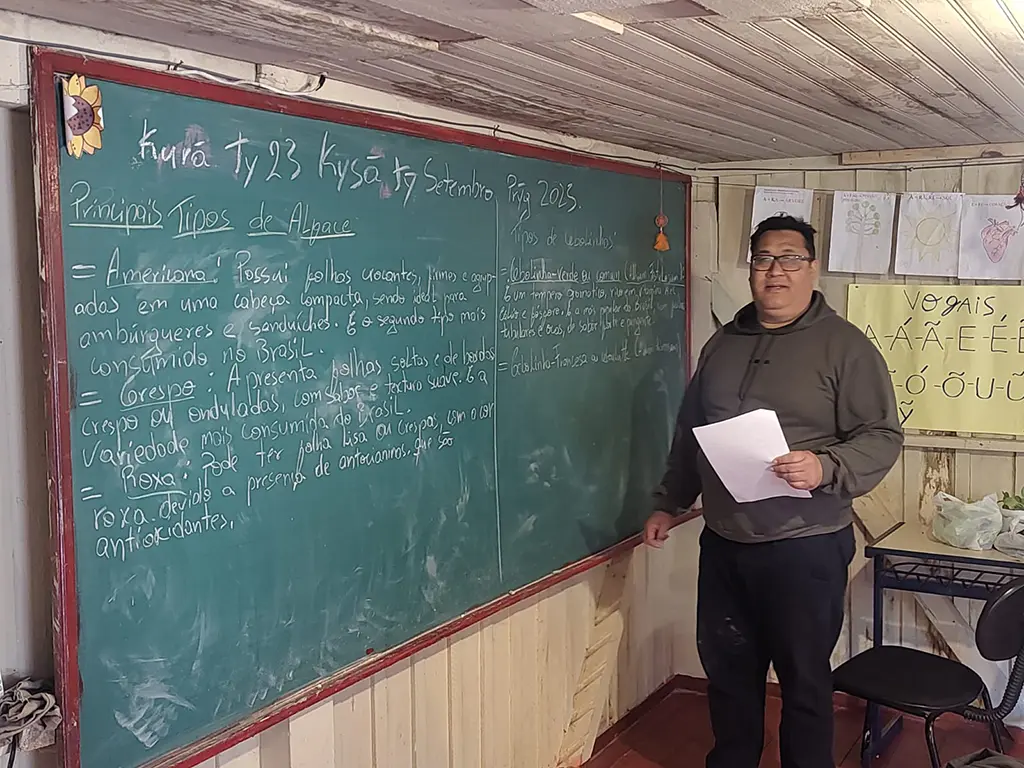 Kurã ty 23 Kysã ty Setembro Prỹg 2025.
Principais Tipos de Alface
= Americana: Possui folhas crocantes, firmes e agrup-
adas em uma cabeça compacta, sendo ideal para
ambúrgueres e sanduíches. É o segundo tipo mais
consumido no Brasil.
= Crespo: Apresenta folhas soltas e de bordas
crespo ou onduladas, com sabor e textura suave. É a
variedade mais consumida do Brasil.
= Roxa: Pode ter folha lisa ou crespas, com a cor
roxa devido a presença de antocianinas. que são
antioxidantes,
Tipos de cebolinhas:
= Cebolinha-Verde ou comum
É um tempero aromático,
tubulares e ocas, de sabor forte e pungente.
= Cebolinha-Francesa ou
VOGAIS
A-Á-Ã-E-É-
-Ó-Õ-U-
Ỹ